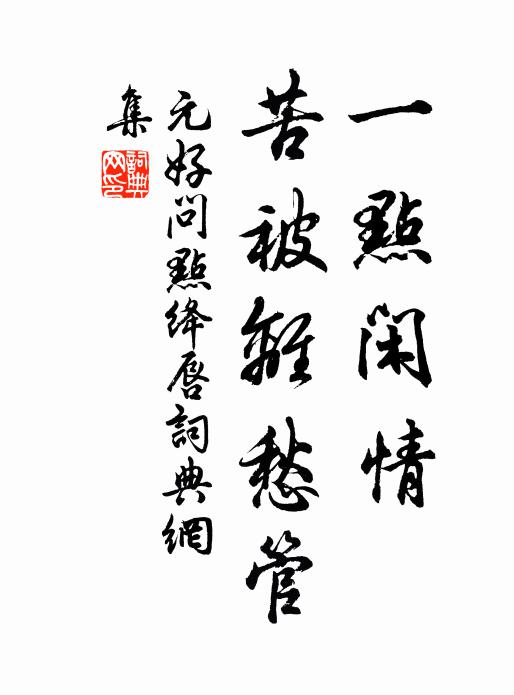 一點閑情
苦被離愁管
元好問點絳唇詞典網
集
詞典
网印